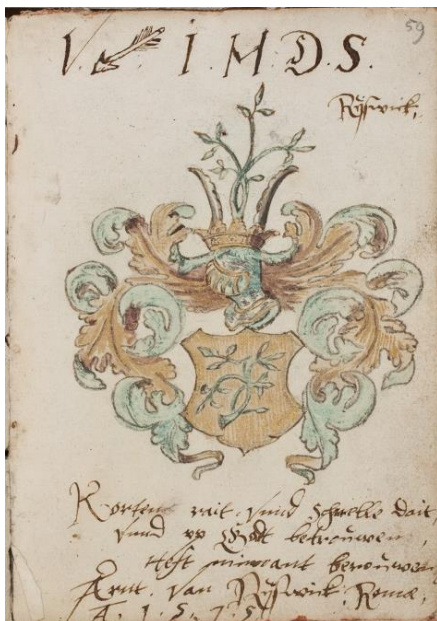 59
V. I. M. D. S.
Rÿswick,
Korten rait vnnd schnelle dait
vnnd vp Godt betrouwen,
Heft niemant berouwen
Arnt Van Rÿswick, Romæ,
A. 1. 5. 7. 5